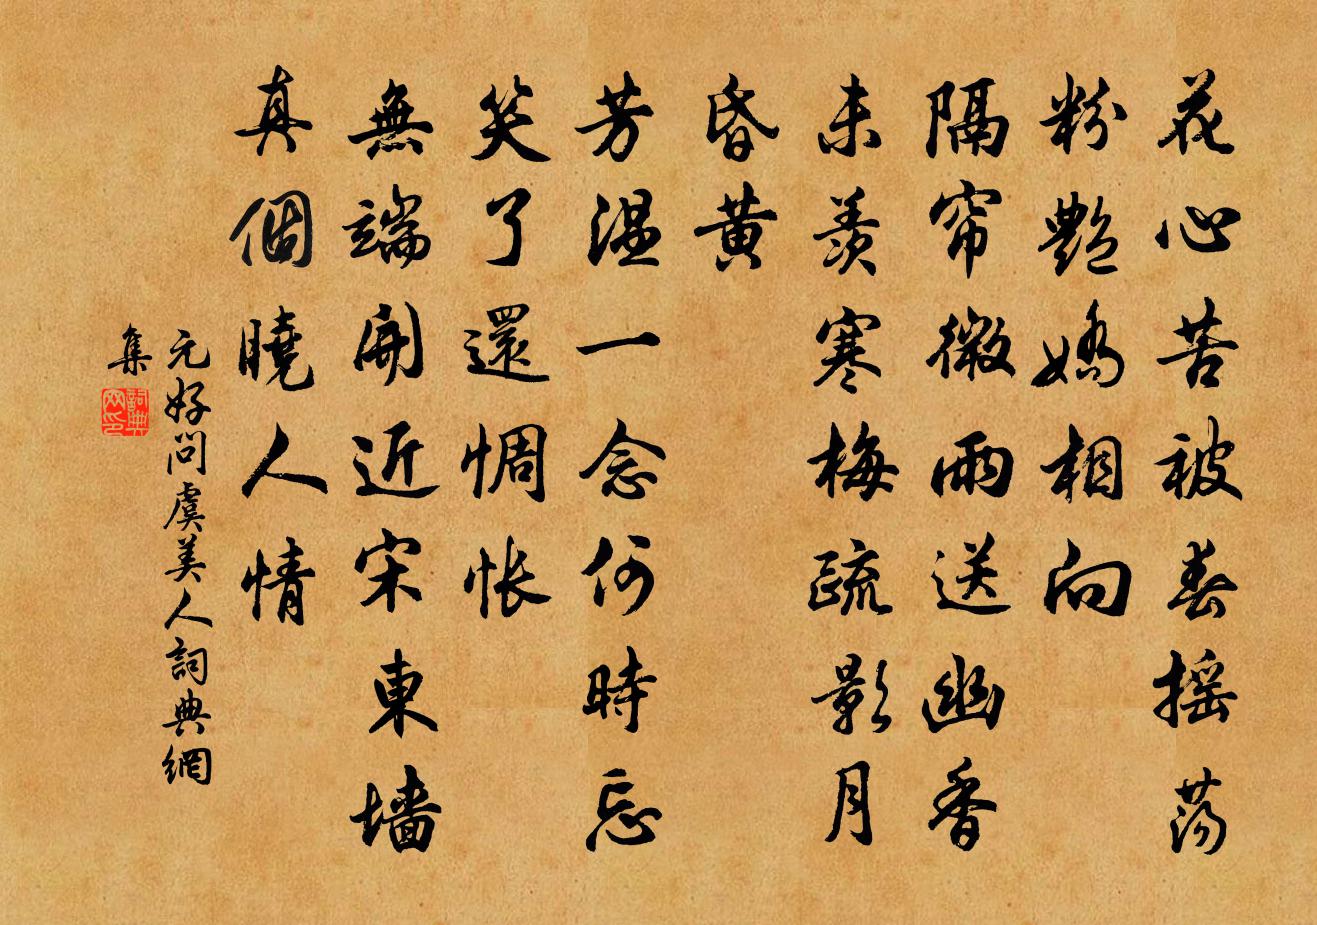 花心苦被春摇荡
粉艷嬌相向
隔帘微雨送幽香
未羨寒梅疏影月
昏黄
芳温一念何時忘
笑了還惆怅
無端開近宋東墙
真個曉人情
元好問虞美人詞典網
集
詞典网印